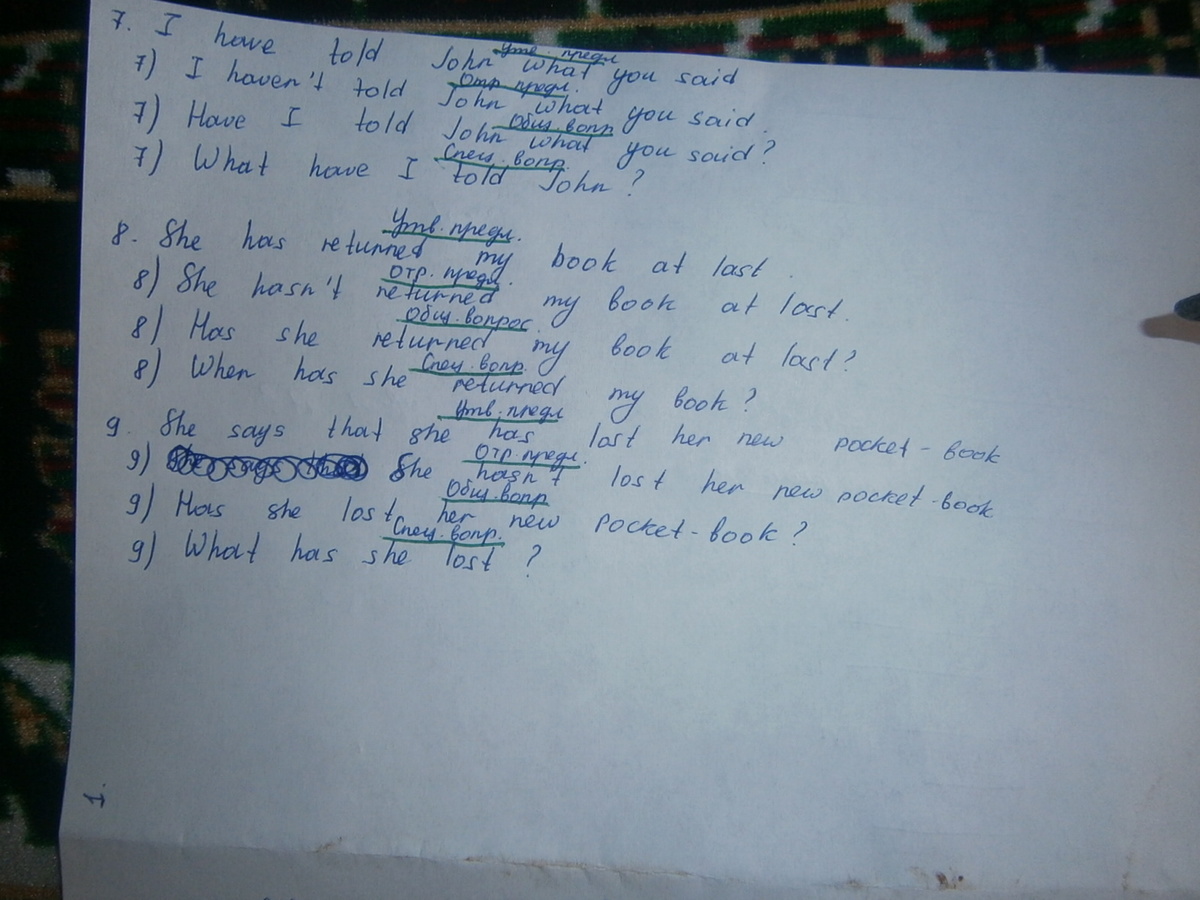 Утв. предл.
7. I have told John what you said
Отр. предл.
7) I haven't told John what you said.
Общ. вопр
7) Have I told John what you said?
Спец. вопр.
7) What have I told John?
Утв. предл.
8. She has returned my book at last.
Отр. предл.
8) She hasn't returned my book at last.
Общ. вопрос.
8) Has she returned my book at last?
Спец. вопр.
8) When has she returned my book?
Утв. предл
9. She says that she has lost her new pocket-book
Отр. предл.
9) She hasn't lost her new pocket-book
Общ. вопр
9) Has she lost her new pocket-book?
Спец. вопр.
9) What has she lost?
1.